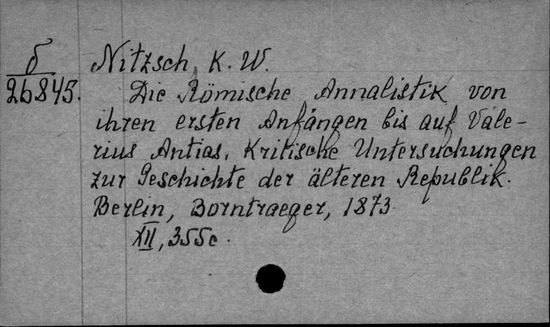 б
26845.
Nitzsch, K. W.
Die Römische Annalistik von
ihren ersten Anfängen bis auf Vale-
rius Antias. Kritische Untersuchungen
zur Geschichte der älteren Republik.
Berlin, Borntraeger, 1873.
XII, 355c.